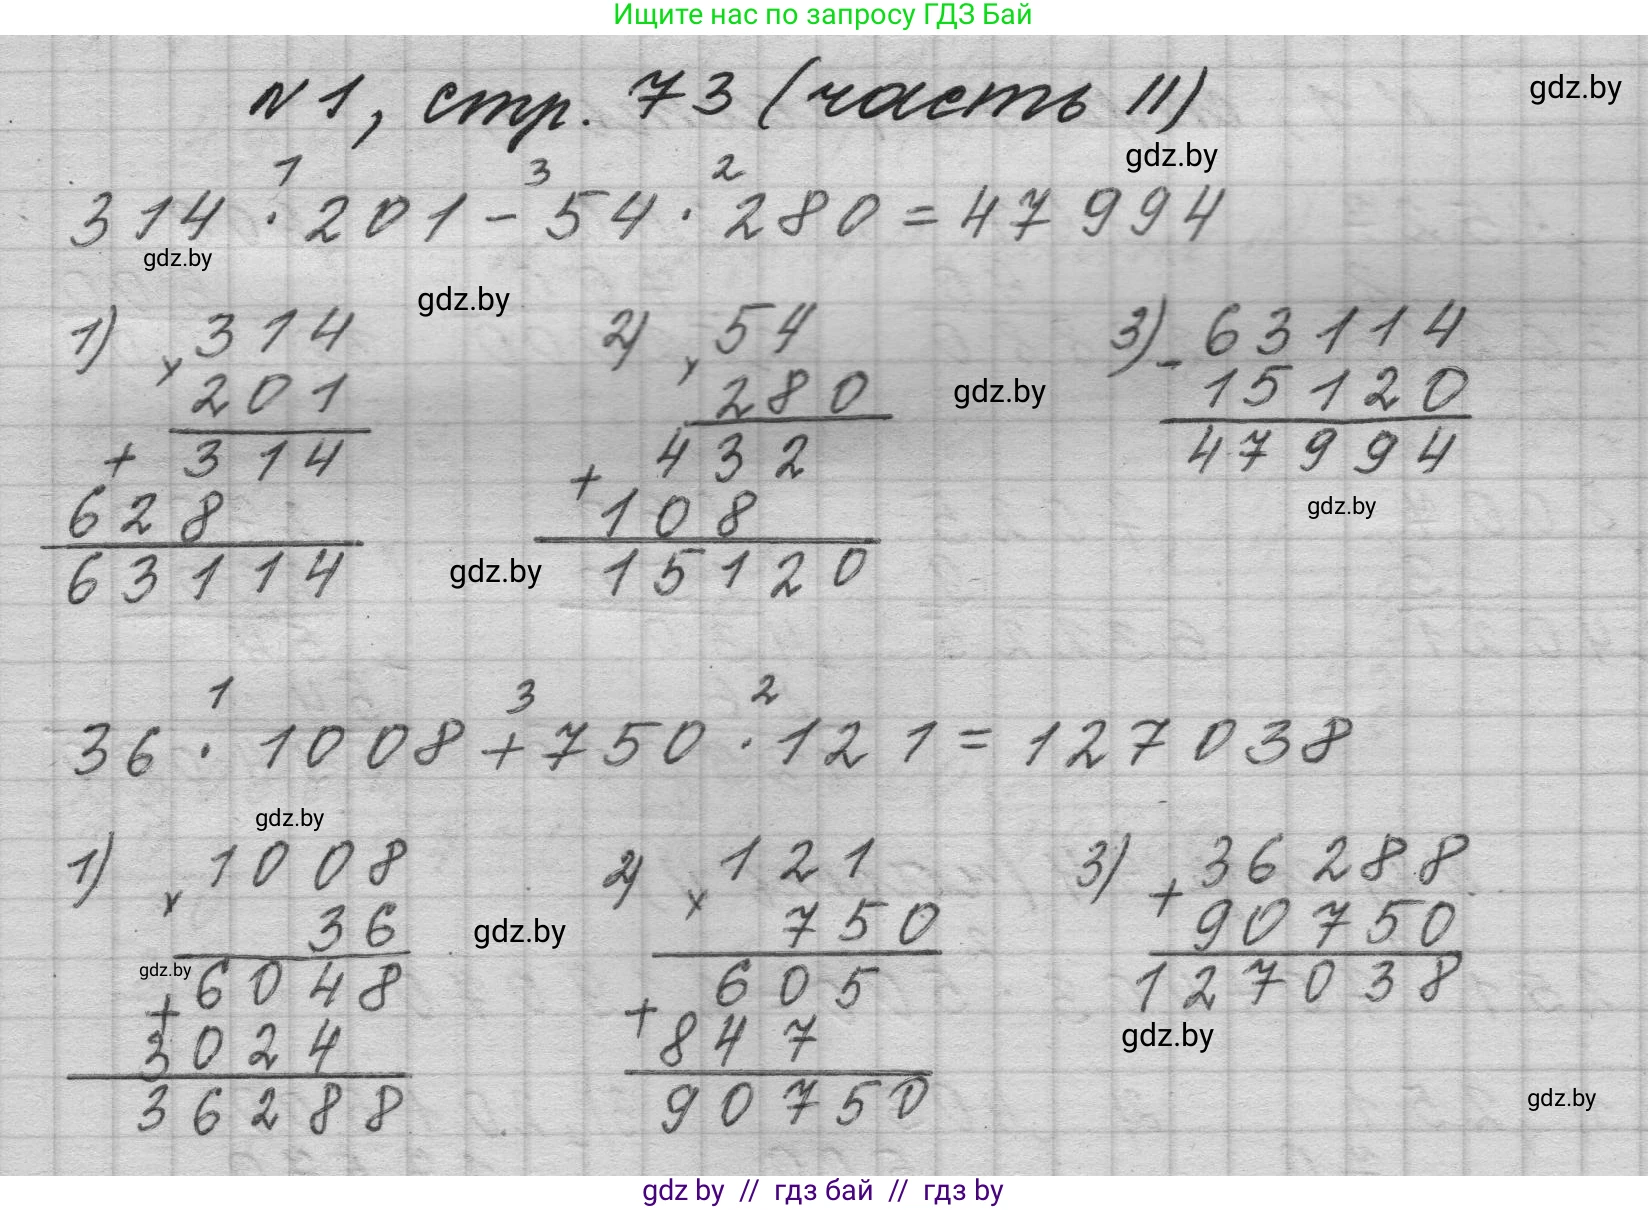 Ищите нас по запросу ГДЗ Бай
N1, стр. 73 (часть II)
gdz.by
gdz.by
1 3 2
314 · 201 - 54 · 280 = 47994
gdz.by
gdz.by
1) 2) 3)
× 314
201
+ 314
628
63114
× 54
280
+ 432
108
15120
gdz.by
- 63114
15120
47994
gdz.by
gdz.by
1 3 2
36 · 1008 + 750 · 121 = 127038
gdz.by
1) 2) 3)
× 1008
36
gdz.by
+ 6048
3024
36288
gdz.by
× 121
750
+ 605
847
90750
+ 36288
90750
127038
gdz.by
gdz.by
gdz by // гдз бай // гдз by